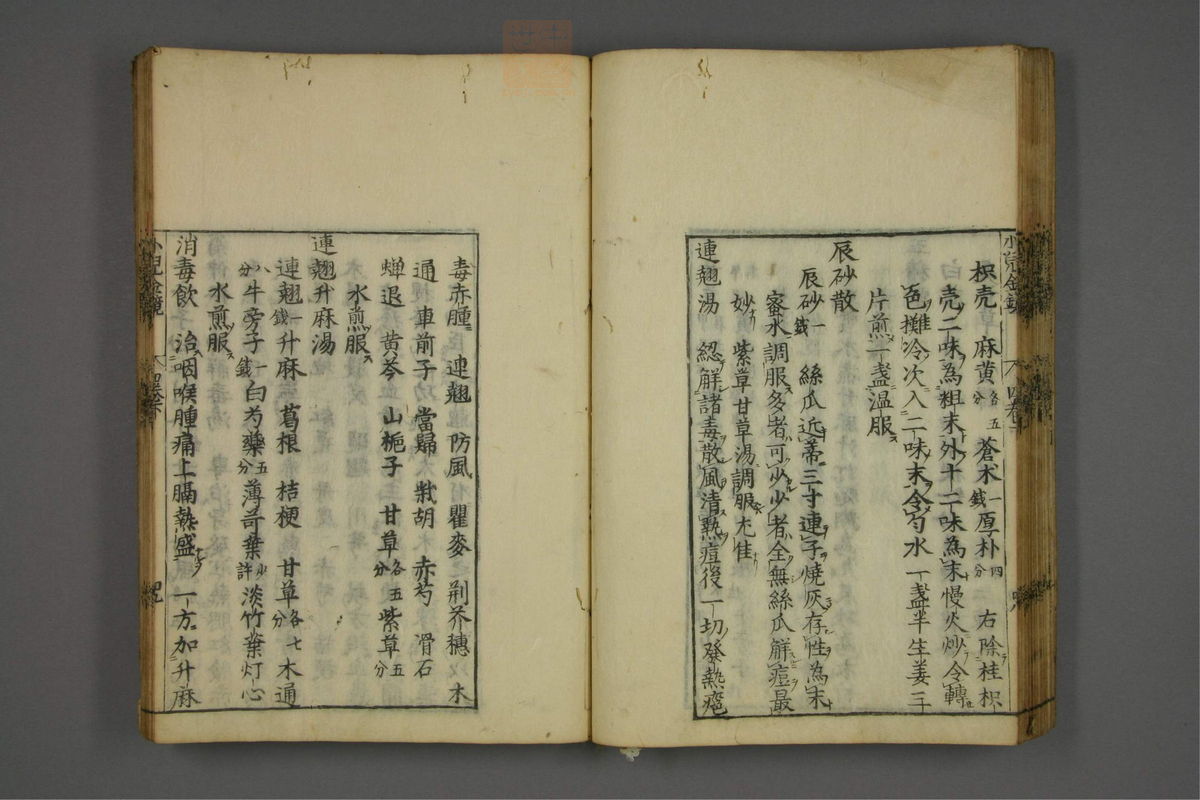 枳壳 麻黄各五分 蒼木一錢 厚朴四分 右除桂枳
壳二味為粗末外十二味為末慢火炒令轉
色攤冷次入二味末令勻水一盞半生姜三
片煎一盞温服
辰砂散
辰砂一錢 絲瓜近蒂三寸連子燒灰存性為末
蜜水調服多者可少少者全無絲瓜解痘最
妙 紫草甘草湯調服尤佳
連翹湯 緫解諸毒散風清熱痘後一切發熱瘡
毒赤腫 連翹 防風 瞿麥 荆芥穗 木
通 車前子 當歸 柴胡 赤芍 滑石
蟬退 黄芩 山梔子 甘草各五分 紫草五分
水煎服
連翹升麻湯
連翹一錢 升麻 葛根 桔梗 甘草各七分 木通
八分 牛旁子一錢 白芍藥五分 薄苛葉少許 淡竹葉 灯心
水煎服
消毒飲 治咽喉腫痛上膈熱盛 一方加升麻